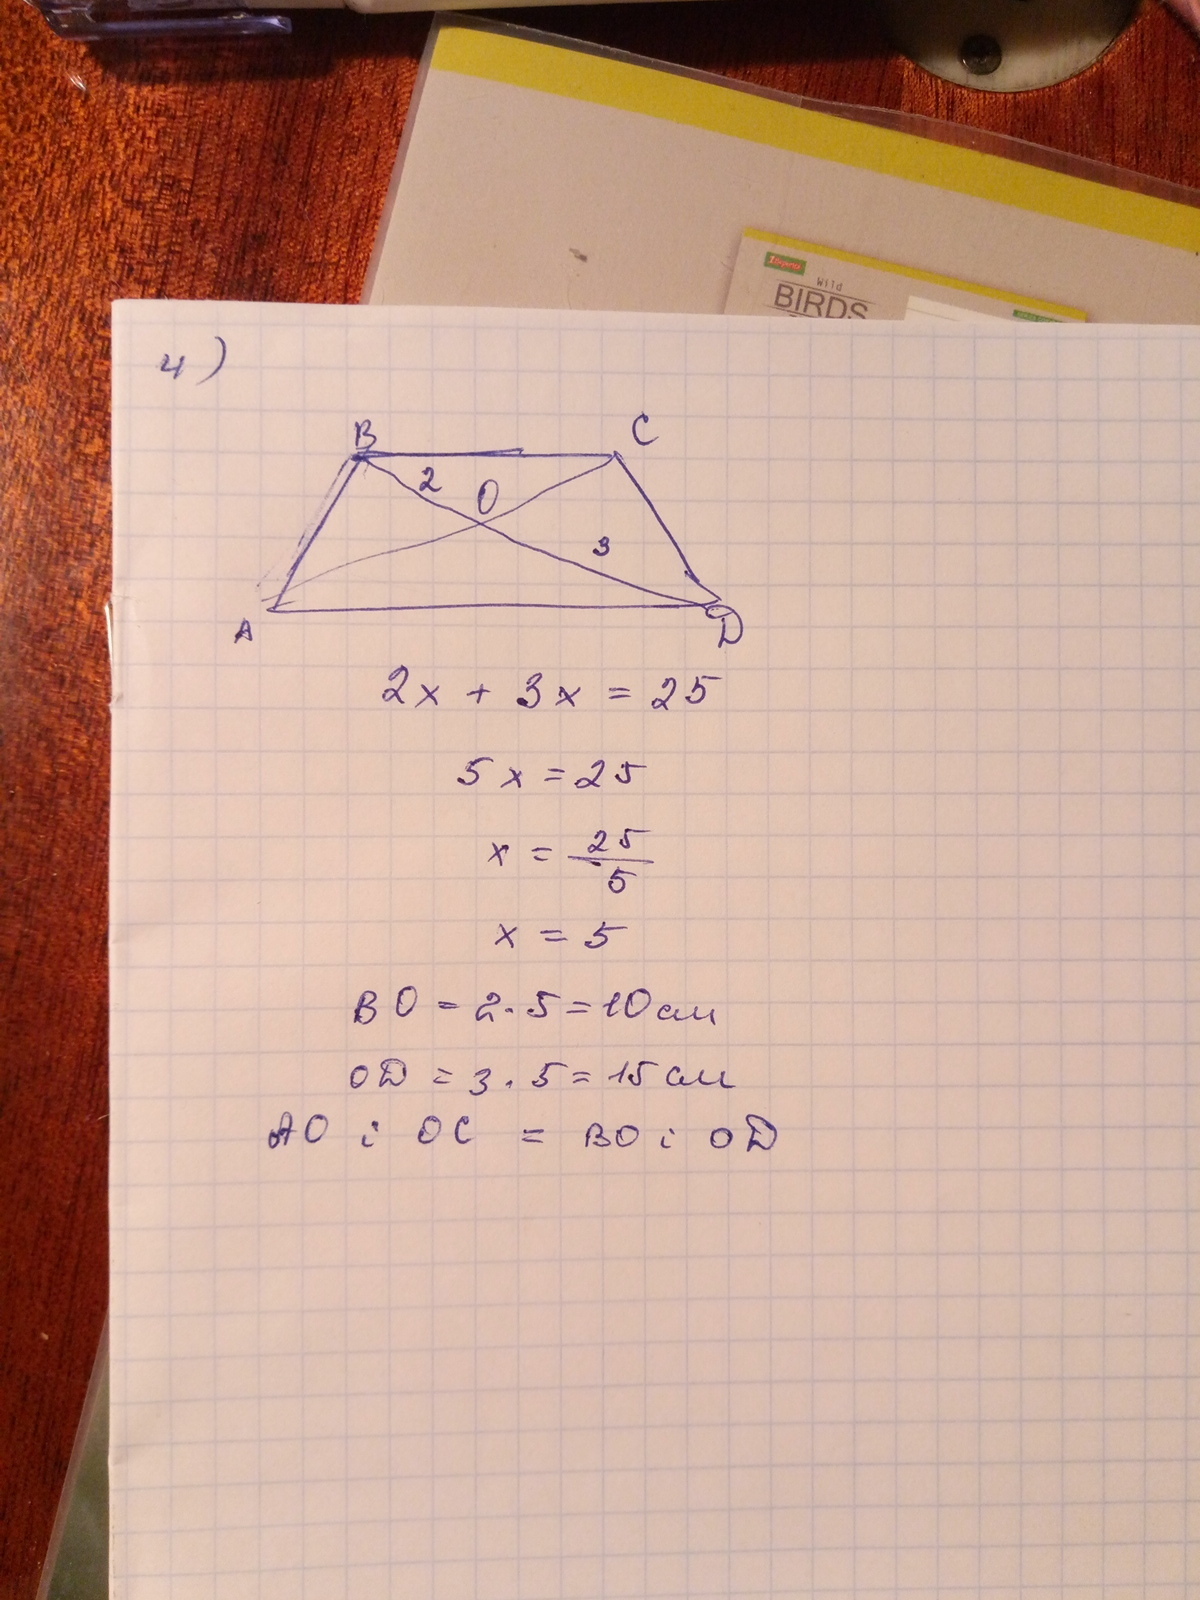 1bepro
Wild
BIRDS
4)
B
C
2
O
3
A
D
2x + 3x = 25
5x = 25
x = 25/5
x = 5
BO = 2 · 5 = 10 см
OD = 3 · 5 = 15 см
AO : OC = BO : OD